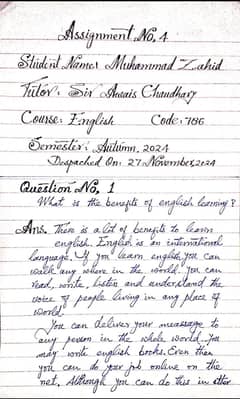 Assignment No, 4
Student Name: Muhammad Zahid
Tutor: Sir Awais Chaudhary
Course: English Code: 786
Semester: Autumn, 2024
Despached On: 27 November, 2024
Question No, 1
What is the benefits of english learning?
Ans. There is a lot of benefits to learn
english. English is an international
language. If you learn english, you can
walk any where in the world. you can
read, write, listen and understand the
voice of people living in any place of
world.
You can deliver your message to
any person in the whole world. You
may write english books. Even then
you can do your job online on the
net. Although you can do this in other